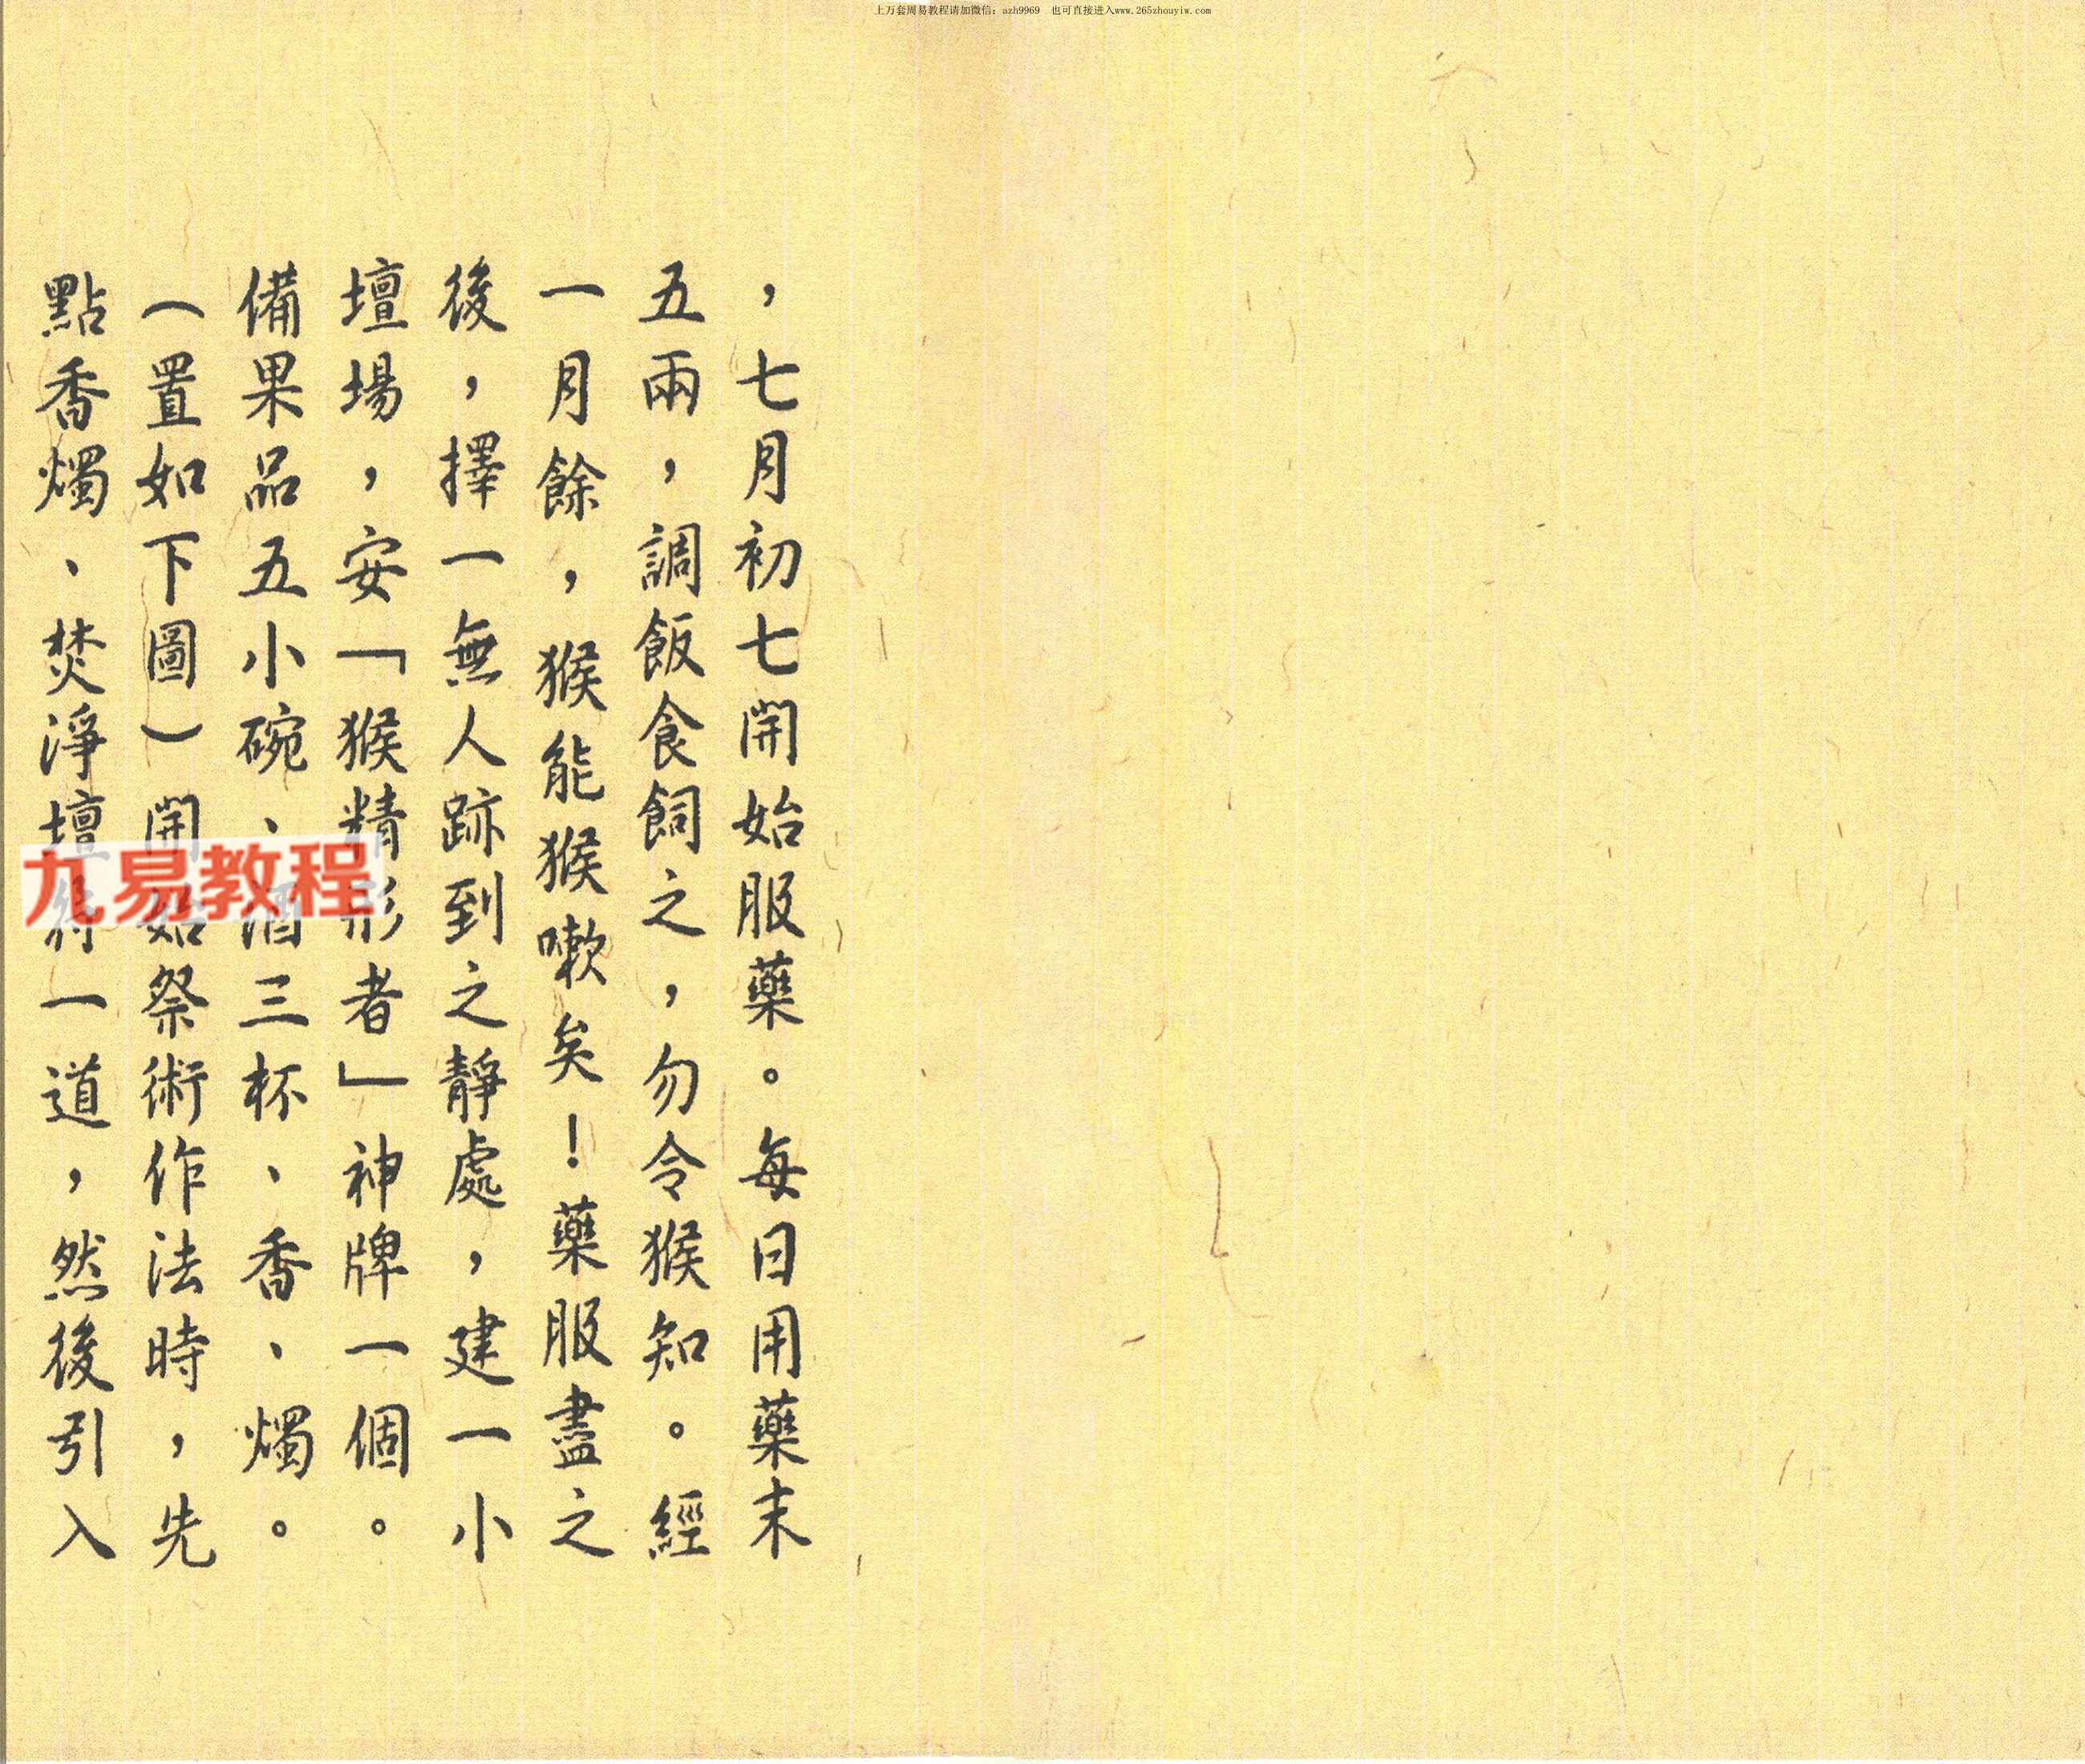 上万套周易教程请加微信：azh9969 也可直接进入www.265zhouyiw.com
，七月初七開始服藥。每日用藥末
五兩，調飯食飼之，勿令猴知。經
一月餘，猴能猴猴嗽矣！藥服盡之
後，擇一無人跡到之靜處，建一小
壇場，安「猴精形者」神牌一個。
備果品五小碗、酒三杯、香、燭。
（置如下圖）開始祭術作法時，先
點香燭、焚淨壇符一道，然後引入
九易教程